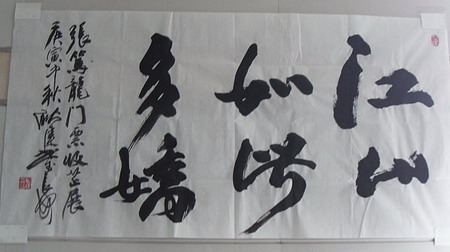 江山
如此
多嬌
張篤龍門票收藏展
庚寅中秋